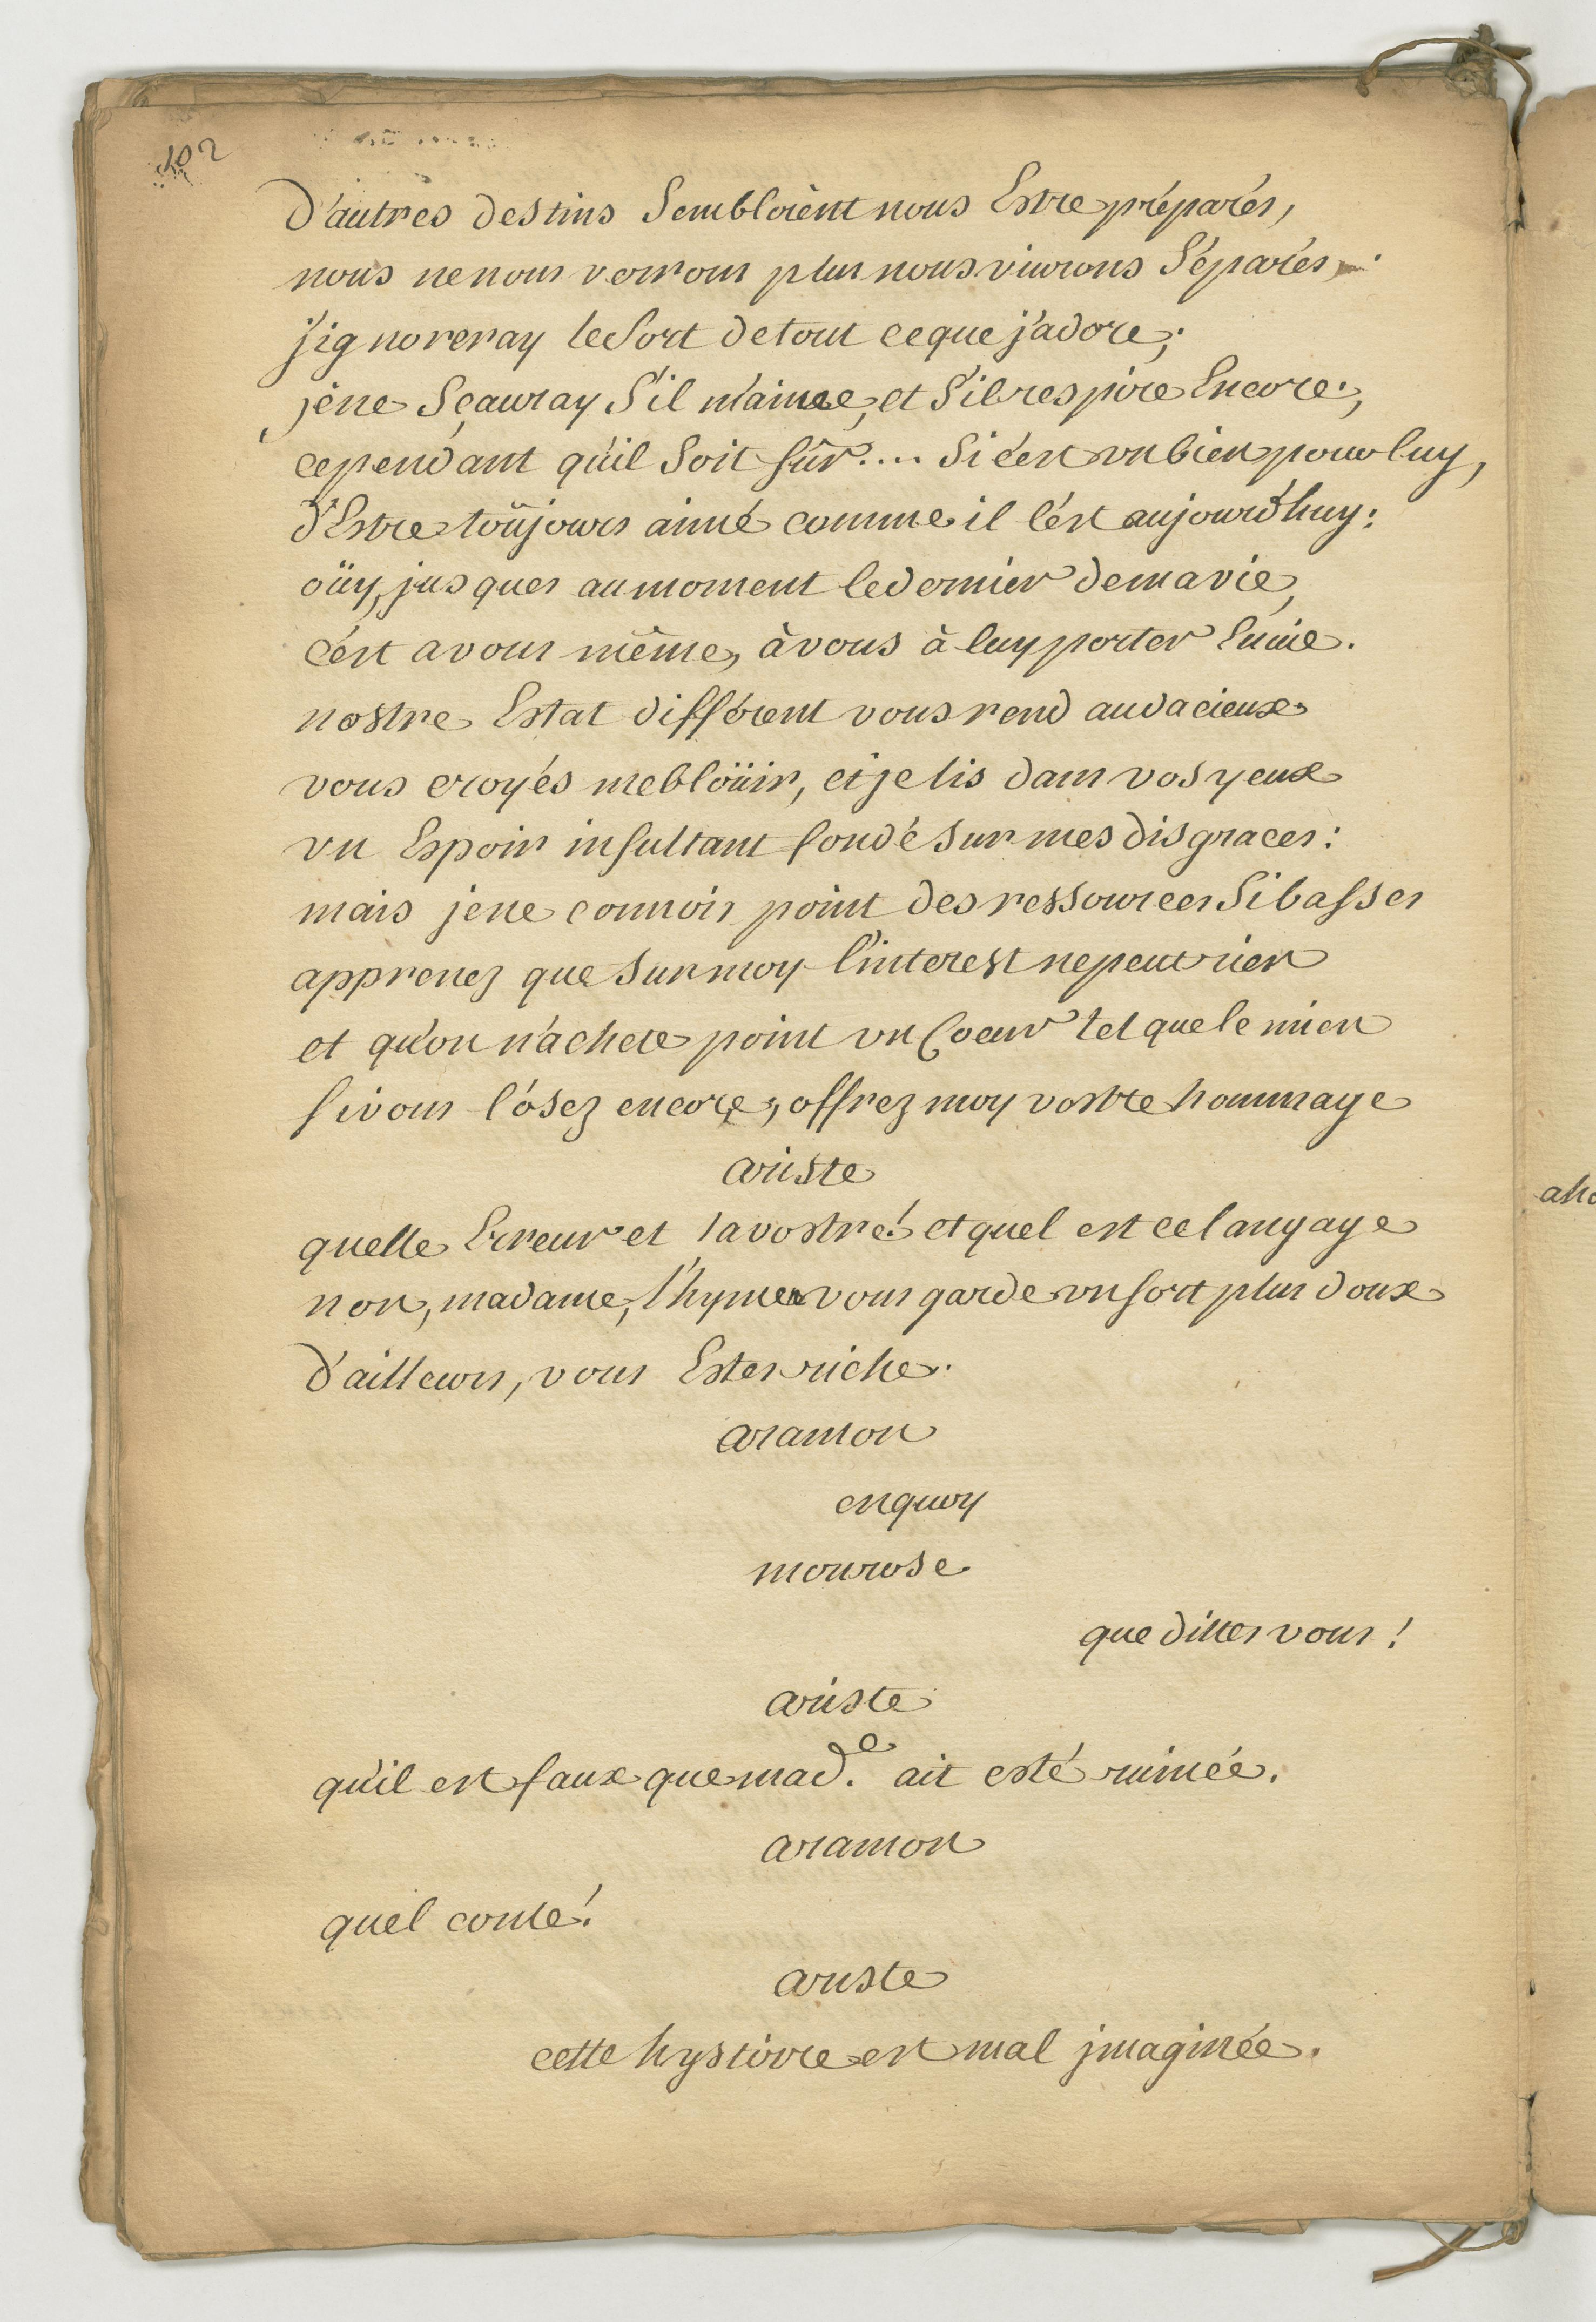 102
D'autres destins Sembloient nous Estre préparés,
nous ne nous verrons plus nous viurons Séparés,
j'ignoreray le Sort de tout ce que j'adore;
je ne Sçauray S'il m'aime, et S'il respire Encore;
cependant qu'il Soit sûr.... Si c'est vn bien pour luy,
d'Estre toûjours aimé comme il l'est aujourd'huy:
oüy, jusques au moment le dernier de ma vie,
c'est a vous même, à vous à luy porter Enuie.
nostre Estat différent vous rend audacieux
vous croyés m'eblöüir, et je lis dans vos yeux
vn Espoir insultant fondé Sur mes disgraces:
mais je ne connois point des ressources Si basses
apprenez que Sur moy l'interest ne peut rien
et qu'on n'achete point vn Coeur tel que le mien
si vous l'ôsez encore, offrez moy vostre hommage
ariste
quelle Erreur et la vostre! et quel est ce langage
non, madame, l'hymen vous garde vn sort plus doux
d'ailleurs, vous Estes riche.
aramon
en quoy
monrose
que dittes vous!
ariste
qu'il est faux que mad.e ait esté ruinée.
aramon
quel conte!
ariste
cette hystoire est mal jmaginée.